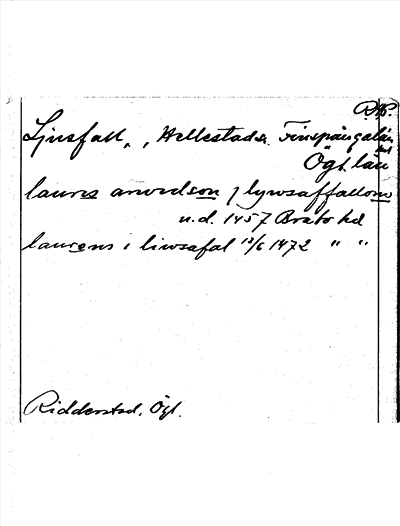 R.K.
Ljusfall, Hellestads Finspångalän
Ögl. län
laurens arvedson j lywsaffallom
u.d. 1457 Bråbo hd
laurens i liwsafal 13/6 1472 " "
Ridderstad, Ögl.